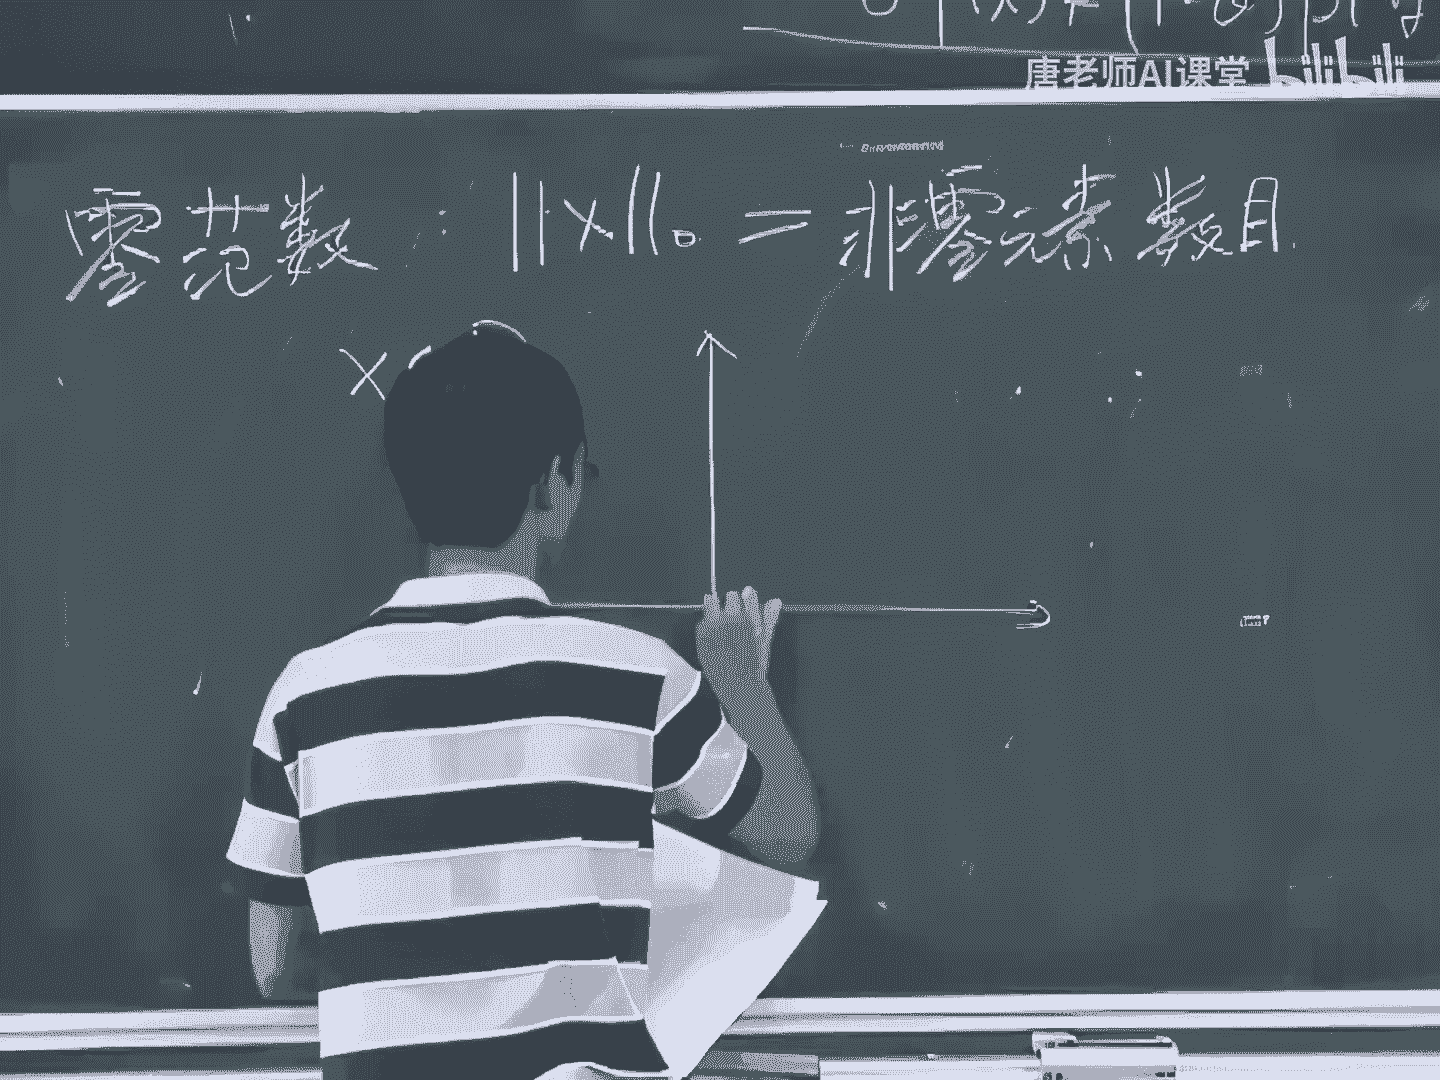 唐老师AI课堂 bilibili
零范数: ||x||₀ = 非零元素数目.
x